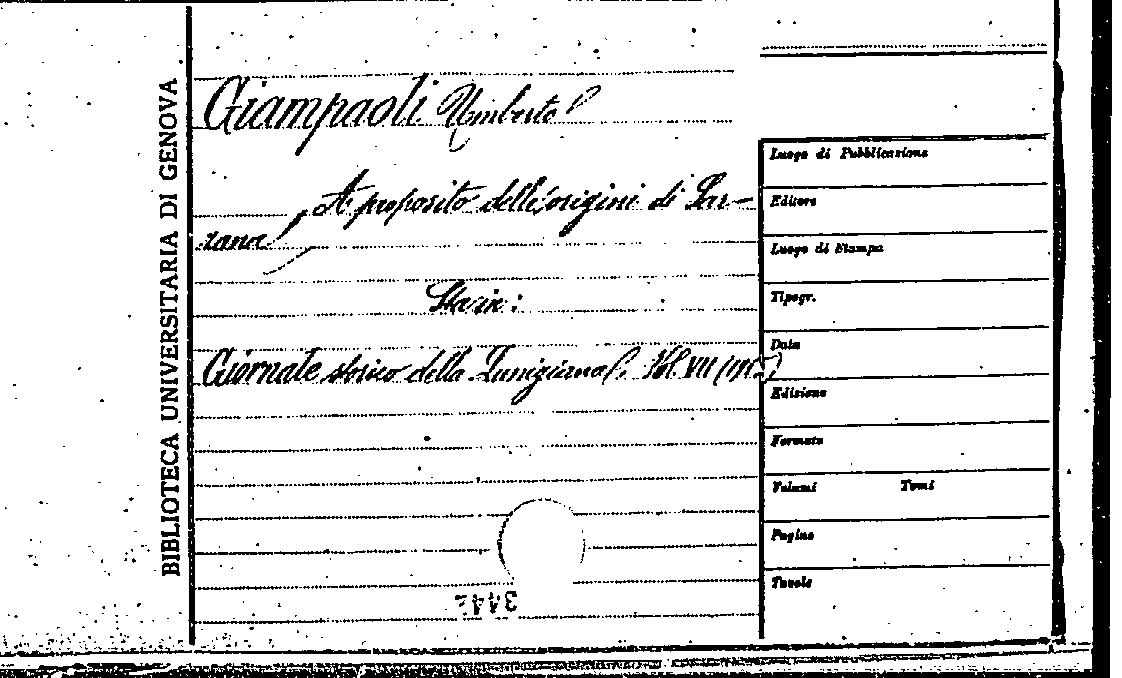 BIBLIOTECA UNIVERSITARIA DI GENOVA
Giampaoli Umberto
A proposito delle origini di Sar-
zana
Sta in:
Giornale storico della Lunigiana. Vol. VII
Luogo di Pubblicazione
Editore
Luogo di Stampa
Tipogr.
Data
Edizione
Formato
Volumi Tomi
Pagine
Tavole